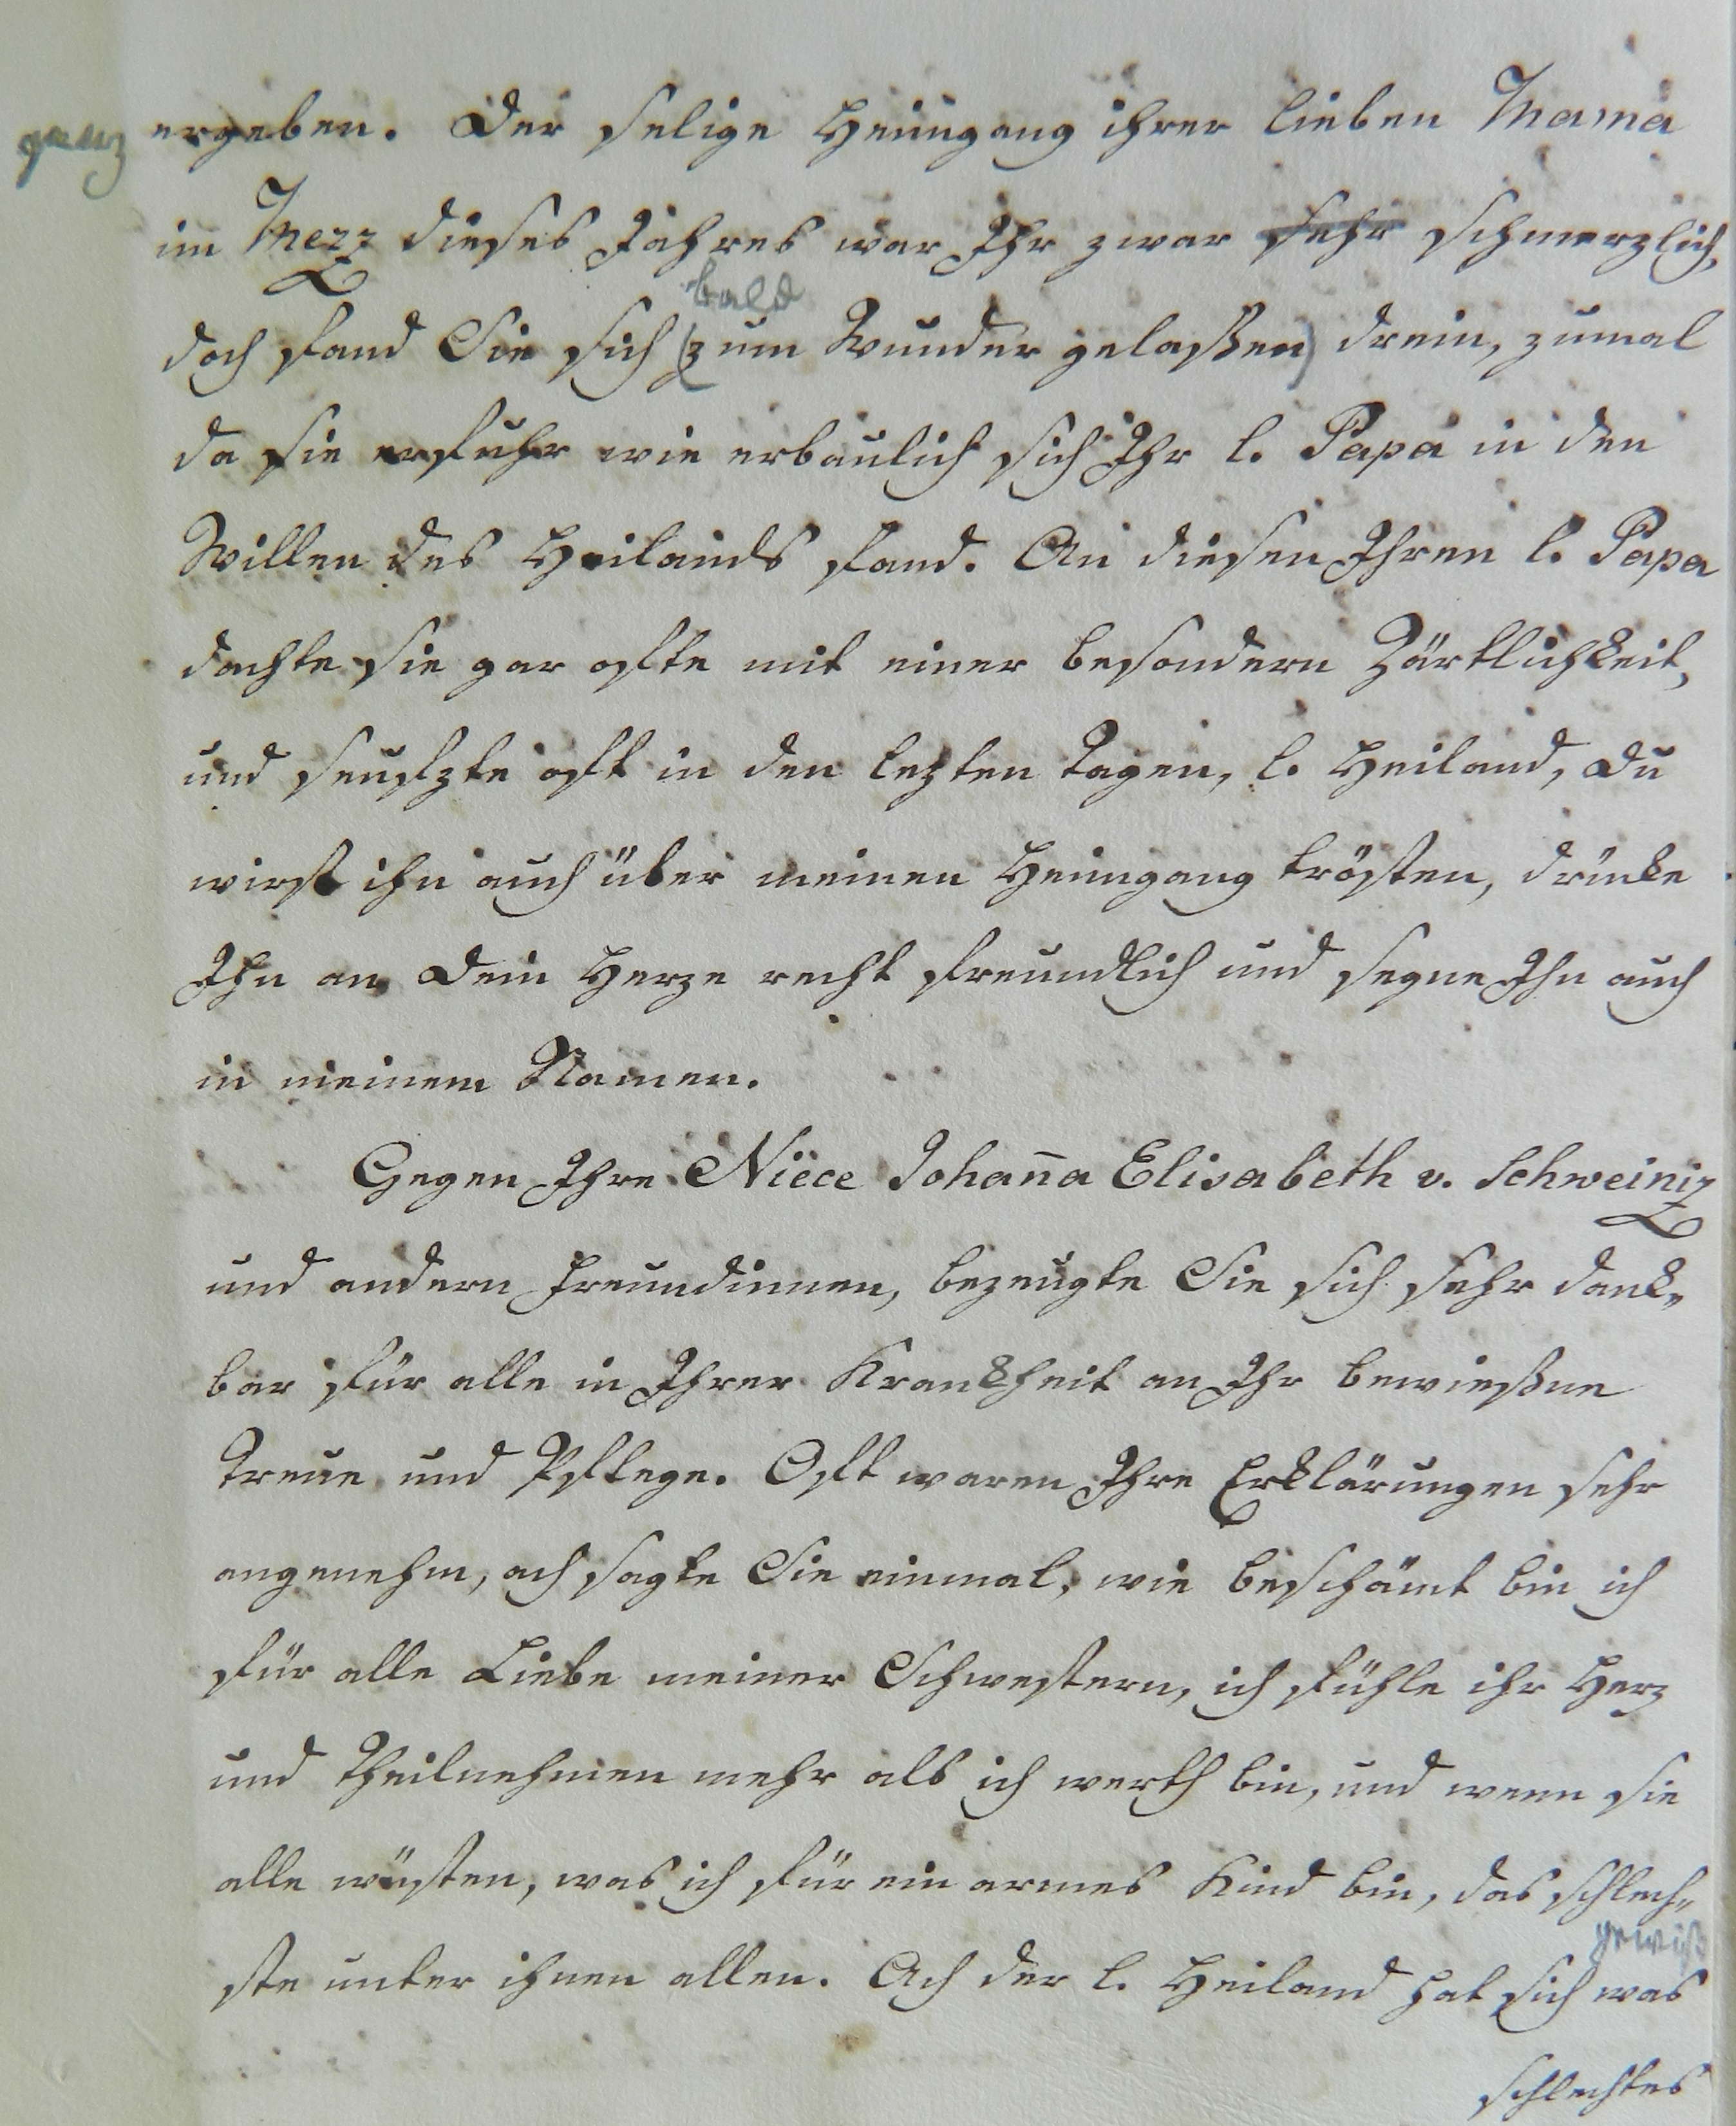 ganz ergeben. Der selige Heimgang ihrer lieben Mama
im Merz dieses Jahres war Ihr zwar sehr schmerzlich,
bald
doch fand Sie sich (zum Wunder gelaßen) drein, zumal
da sie erfuhr wie erbaulich sich Ihr l. Papa in den
Willen des Heilands fand. An diesen Ihren l. Papa
dachte sie gar ofte mit einer besondern Zärtlichkeit,
und seufzte oft in den lezten Tagen, l. Heiland, Du
wirst ihn auch über meinen Heimgang trösten, drücke
Ihn an Dein Herze recht freundlich und segne Ihn auch
in meinem Namen.
Gegen Ihre Niëce Johan̄a Elisabeth v. Schweiniz
und andern Freundinnen, bezeugte Sie sich sehr dank-
bar für alle in Ihrer Krankheit an Ihr bewießne
Treue und Pflege. Oft waren Ihre Erklärungen sehr
angenehm, ach sagte Sie einmal, wie beschämt bin ich
für alle Liebe meiner Schwestern, ich fühle ihr Herz
und Theilnehmen mehr als ich werth bin, und wenn sie
alle wüsten, was ich für ein armes Kind bin, das schlech-
gewiß
ste unter ihnen allen. Ach der l. Heiland hat sich was
schlechtes